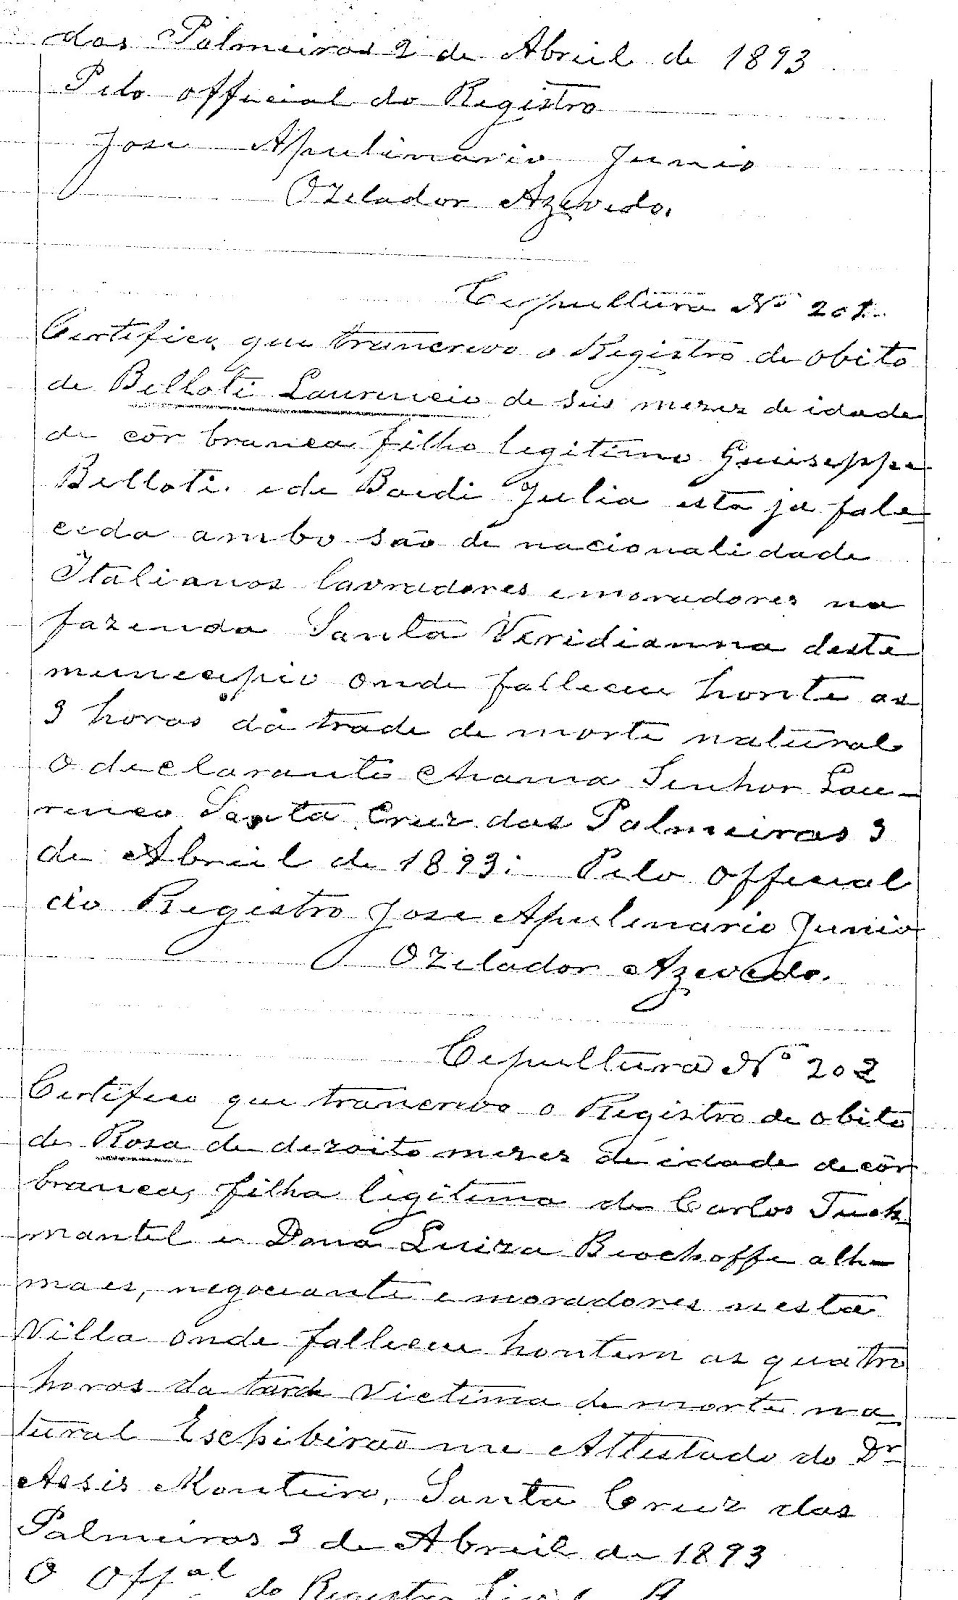 das Palmeiras 2 de Abril de 1893
Pelo official do Registro
Jose Apulinario Junio
O Zelador Azevedo.
Cepultura Nº 201
Certifico que trancrevo o Registro de obito
de Belloti Laurencio de seis mezes de idade
de côr branca filho legitimo Guiseppe
Belloti. e de Boedi Julia esta ja fale=
cida ambo são de nacionalidade
Italianos lavradores e moradores na
fazenda Santa Veridianna deste
municipio onde falleceu honte as
3 horas da trade de morte natural
O declarante chama Senhor Lou-
renco Santa Cruz das Palmeiras 3
de Abril de 1893: Pelo official
do Registro Jose Apulinario Junio
O Zelador Azevedo.
Cepultura Nº 202
Certifico que trancrevo o Registro de obito
de Rosa de dezoito mezes de idade de côr
branca, filha legitima de Carlos Tuck
mantel e Dona Luiza Beochoffe alle=
maes, negociante e moradores nesta
Villa onde falleceu hontem as quatro
horas da tarde Victima de morte na
tural Eschibirão me Attestado do Dr
Assis Monteiro, Santa Cruz das
Palmeiras 3 de Abreil de 1893
O Offal do Registro Civil